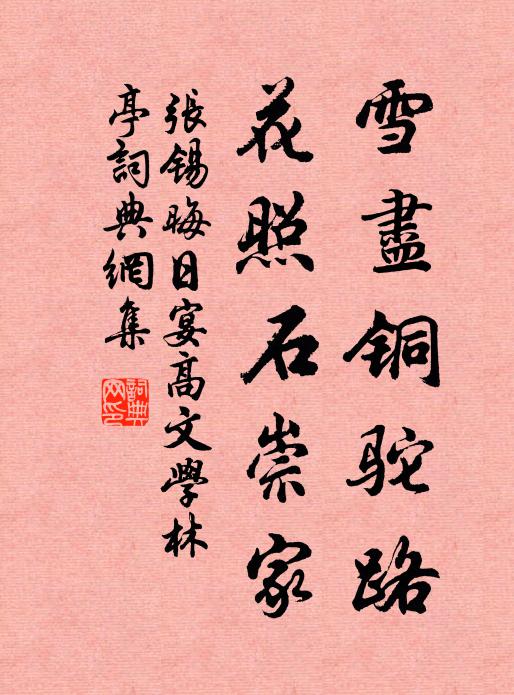 雪盡铜駝路
花照石崇家
張錫晦日宴高文學林
亭詞典網集
詞典
网印